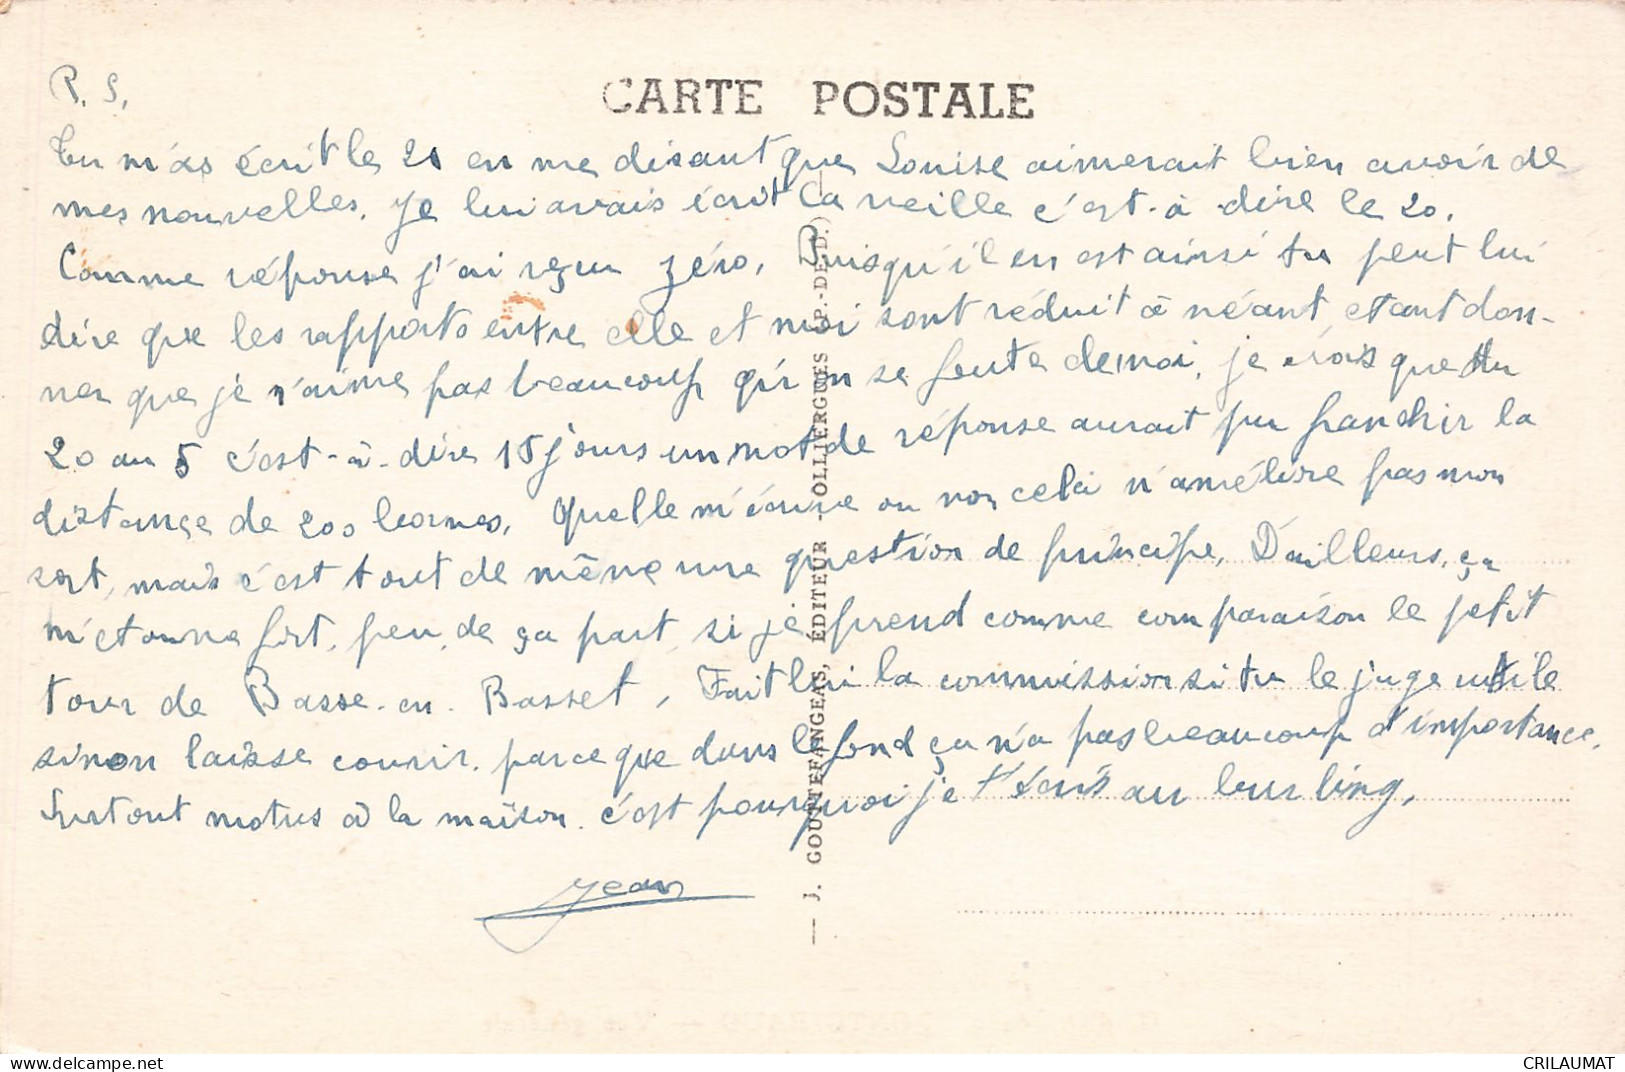 CARTE POSTALE
P. S.
Tu m'as écrit le 21 en me disant que Louise aimerait bien avoir de
mes nouvelles. Je lui avais écrit la veille c'est-à-dire le 20.
Comme réponse j'ai reçu zéro. Puisqu'il en est ainsi tu peut lui
dire que les rapports entre elle et moi sont réduit à néant, etant don-
ner que je n'aime pas beaucoup qu'on se foute de moi, je crois que du
20 au 5 c'est-à-dire 15 jours un mot de réponse aurait pu franchir la
distance de 200 bornes. Quelle m'écrive ou non cela n'améliore pas mon
sort, mais c'est tout de même une question de principe. D'ailleurs, ça
m'étonne fort, peu, de ça part, si je prend comme comparaison le petit
tour de Basse-en-Basset, Fait lui la commission si tu le juge utile
sinon laisse courir. parce que dans le fond ça n'a pas beaucoup d'importance.
Surtout motus à la maison. c'est pourquoi je t'écris au burling.
Jean
— J. GOUTTEFANGEAS, ÉDITEUR - OLLIERGUES (P.-DE-D.) —
delcampe.net
CRILAUMAT